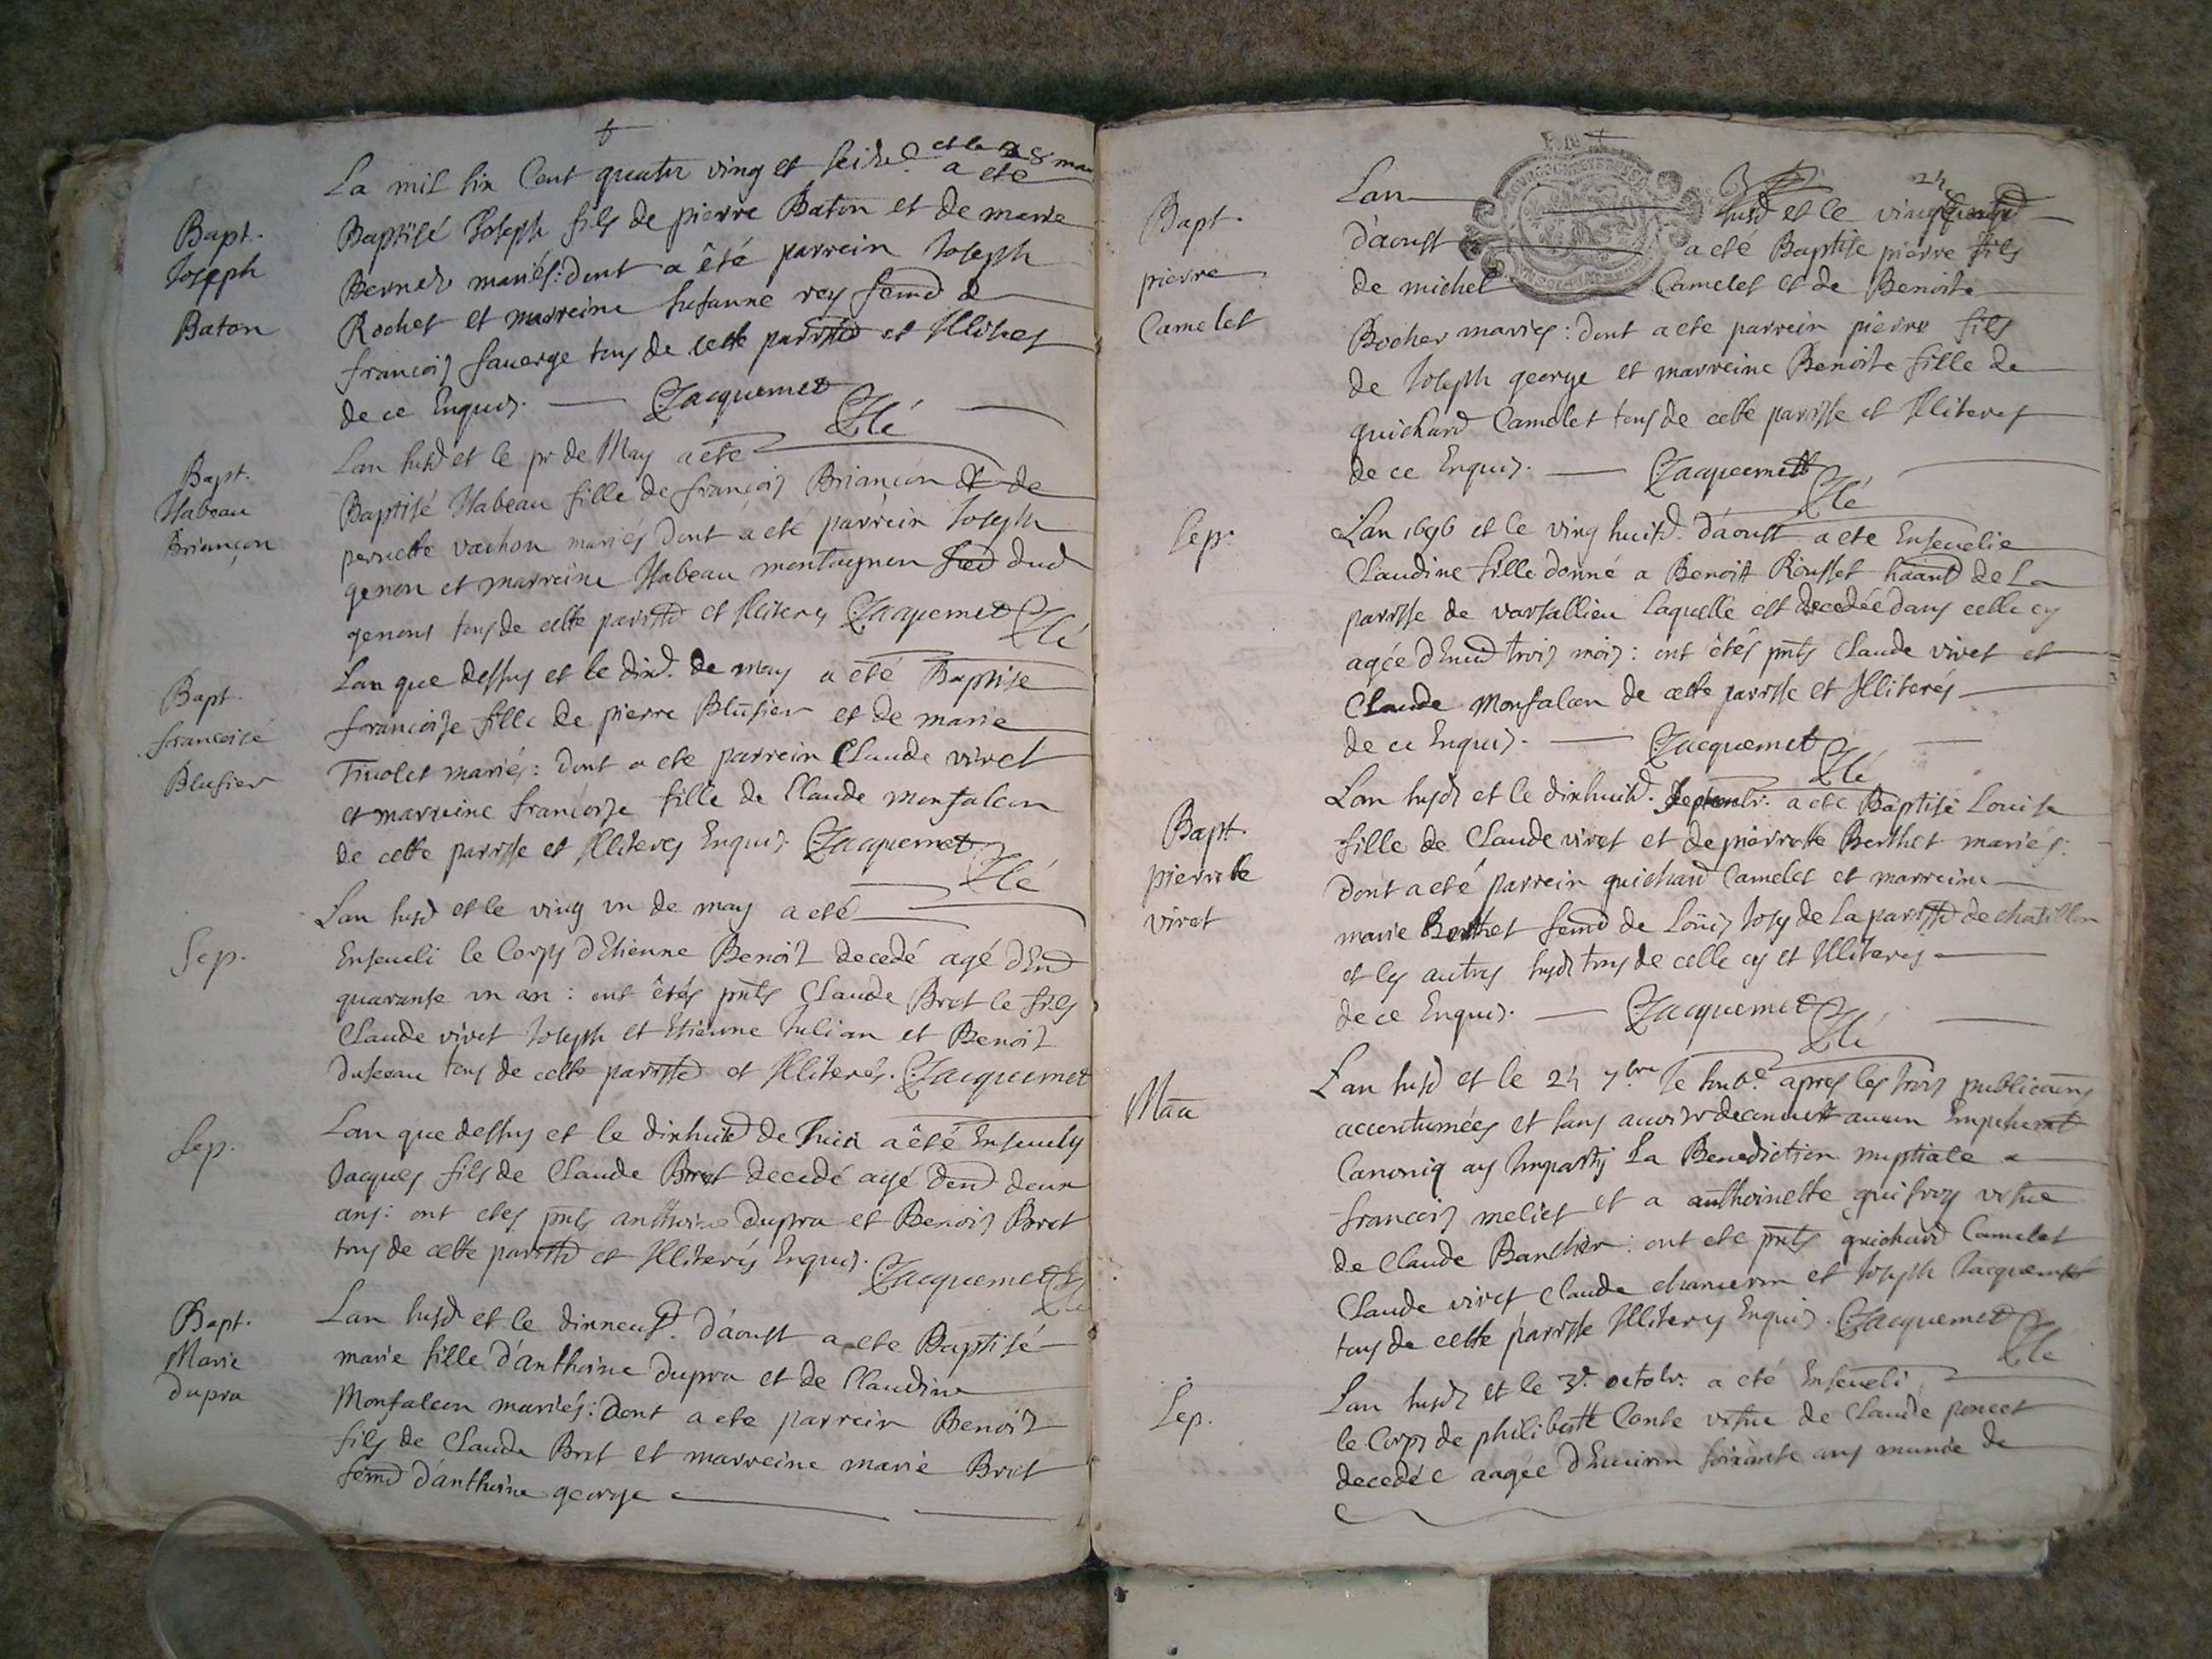 La mil six Cent quatre ving et seize et le 28 mars a ete
Bapt.
Joseph
Baton
Baptisé Joseph fils de pierre Baton et de marie
mariés: dont a été parrein Joseph
Rochet et marreine Susanne rey
françois sauerge tous de cette parisse et Illiteres
de ce Enquis. Jacquemet Cté
Bapt.
Isabeau
Briançon
Lan susd et le pr de May a ete
Baptisé Isabeau fille de françois Briançon et de
pernette vachon mariés dont a ete parrein Joseph
genon et marreine Isabeau montagnon dud
genons tous de cette parisse et Illiteres Jacquemet Cté
Bapt.
francoise
Blusier
Lan que dessus et le dix de may a été Baptise
francoise fille de pierre Blusier et de marie
Tivolet mariés: dont a ete parrein Claude vivet
et marreine francoise fille de Claude monfalcon
de cette parisse et Illiteres Enquis. Jacquemet Cté
Sep.
Lan susd et le ving un de may a eté
Enseueli le Corps d'Etienne Benoit decedé agé d'En
quarante un an: ont êtés pnts Claude Bret le fils
Claude vivet Joseph et Etienne Julian et Benoit
duseau tous de cette parisse et Illiterés. Jacquemet
Sep.
Lan que dessus et le dixhuit de Juin a été Enseuely
Jacques fils de Claude Bret decedé agé d'en deux
ans: ont etes pnts anthoine Dupra et Benois Bret
tous de cette parisse et Illiterés Enquis. Jacquemet Cté
Bapt.
Marie
Dupra
Lan susd et le dixneuf. d'aoust a ete Baptisé
marie fille d'anthoine Dupra et de Claudine
Monfalcon mariés: dont a ete parrein Benoit
fils de Claude Bret et marreine marie Bret
d'anthoine george
Bapt.
pierre
Camelet
Lan susd et le ving 24
d'aoust a eté Baptise pierre fils
de michel Camelet et de Benoite
Bocher maries: dont a ete parrein pierre fils
de Joseph george et marreine Benoite fille de
guichard Camelet tous de cette parisse et Illiteres
de ce Enquis. Jacquemet Cté
Sep.
Lan 1696 et le ving huit. d'aoust a ete Enseuelie
Claudine fille donné a Benoit Rousset de La
parisse de varsallieu Laquelle est decedée dans celle cy
agée d'Enu trois mois: ont êtés pnts Claude vivet et
Claude Monfalcon de cette parisse et Illiterés
de ce Enquis. Jacquemet Cté
Bapt.
pierrette
vivet
Lan susd et le dixhuit. Septembr. a ete Baptisé Louise
fille de Claude vivet et de pierrette Berthet mariés:
dont a eté parrein guichard Camelet et marreine
marie Berthet de Louis Josy de La parisse de chatillon
et les autres susd tous de celle cy et Illiteres
de ce Enquis. Jacquemet Cté
Maa
Lan susd et le 24 7bre Je apres les trois publicaons
accoutumées et sans auoir decouuert aucun
Canoniq ay Imparty La Benediction nuptiale a
francois meliet et a anthoinette
de Claude: ont ete pnts guichard Camelet
Claude vivet Claude et Joseph Jacquemet
tous de cette parisse Illiteres Enquis. Jacquemet Cté
Sep.
Lan susd et le 3e. octobr. a eté Enseueli
le Corps de philiberte Conte de Claude poncet
decedée aagée d'Enuiron soixante ans munie de